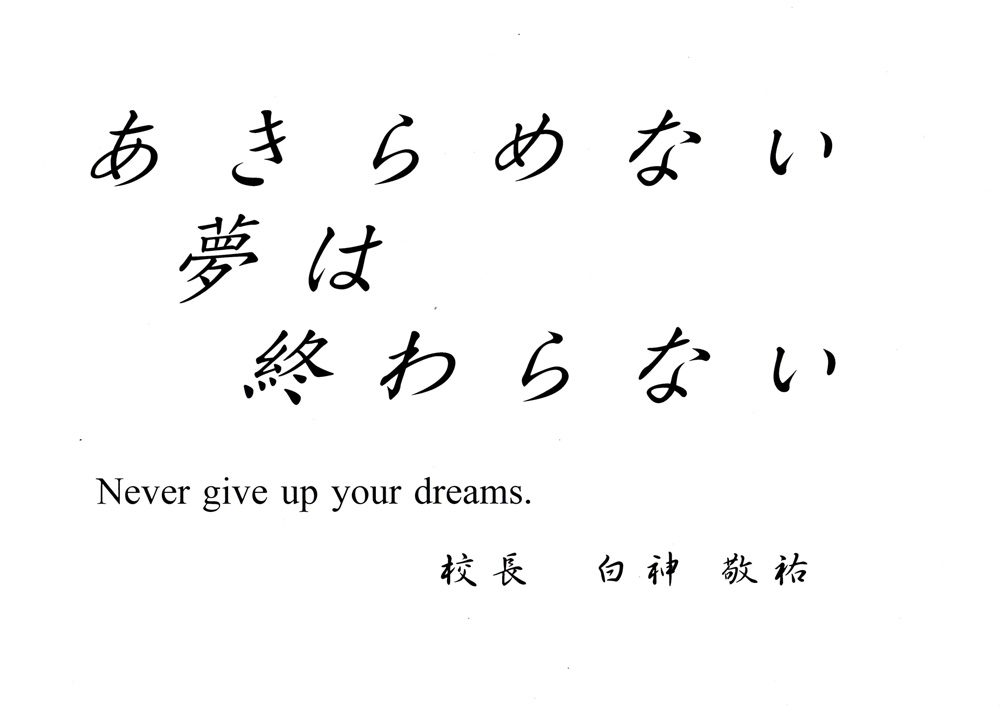 あきらめない
夢は
終わらない
Never give up your dreams.
校長　白神 敬祐